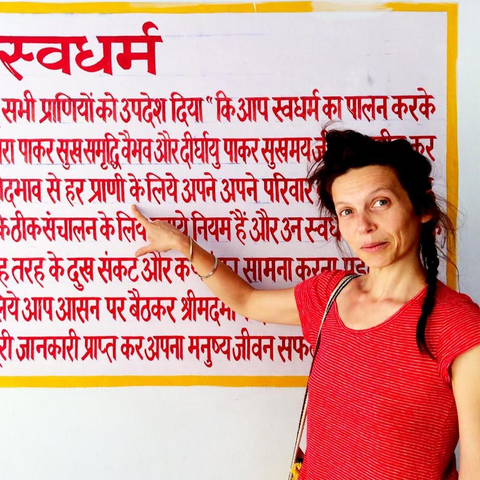 स्वधर्म
सभी प्राणियों को उपदेश दिया " कि आप स्वधर्म का पालन करके
पाकर सुख समृद्धि वैभव और दीर्घायु पाकर सुखमय कर
से हर प्राणी के लिये अपने अपने परिवार
ठीक संचालन के लिये नियम हैं और उन
तरह के दुख संकट और का सामना करना
आप आसन पर बैठकर
जानकारी प्राप्त कर अपना मनुष्य जीवन